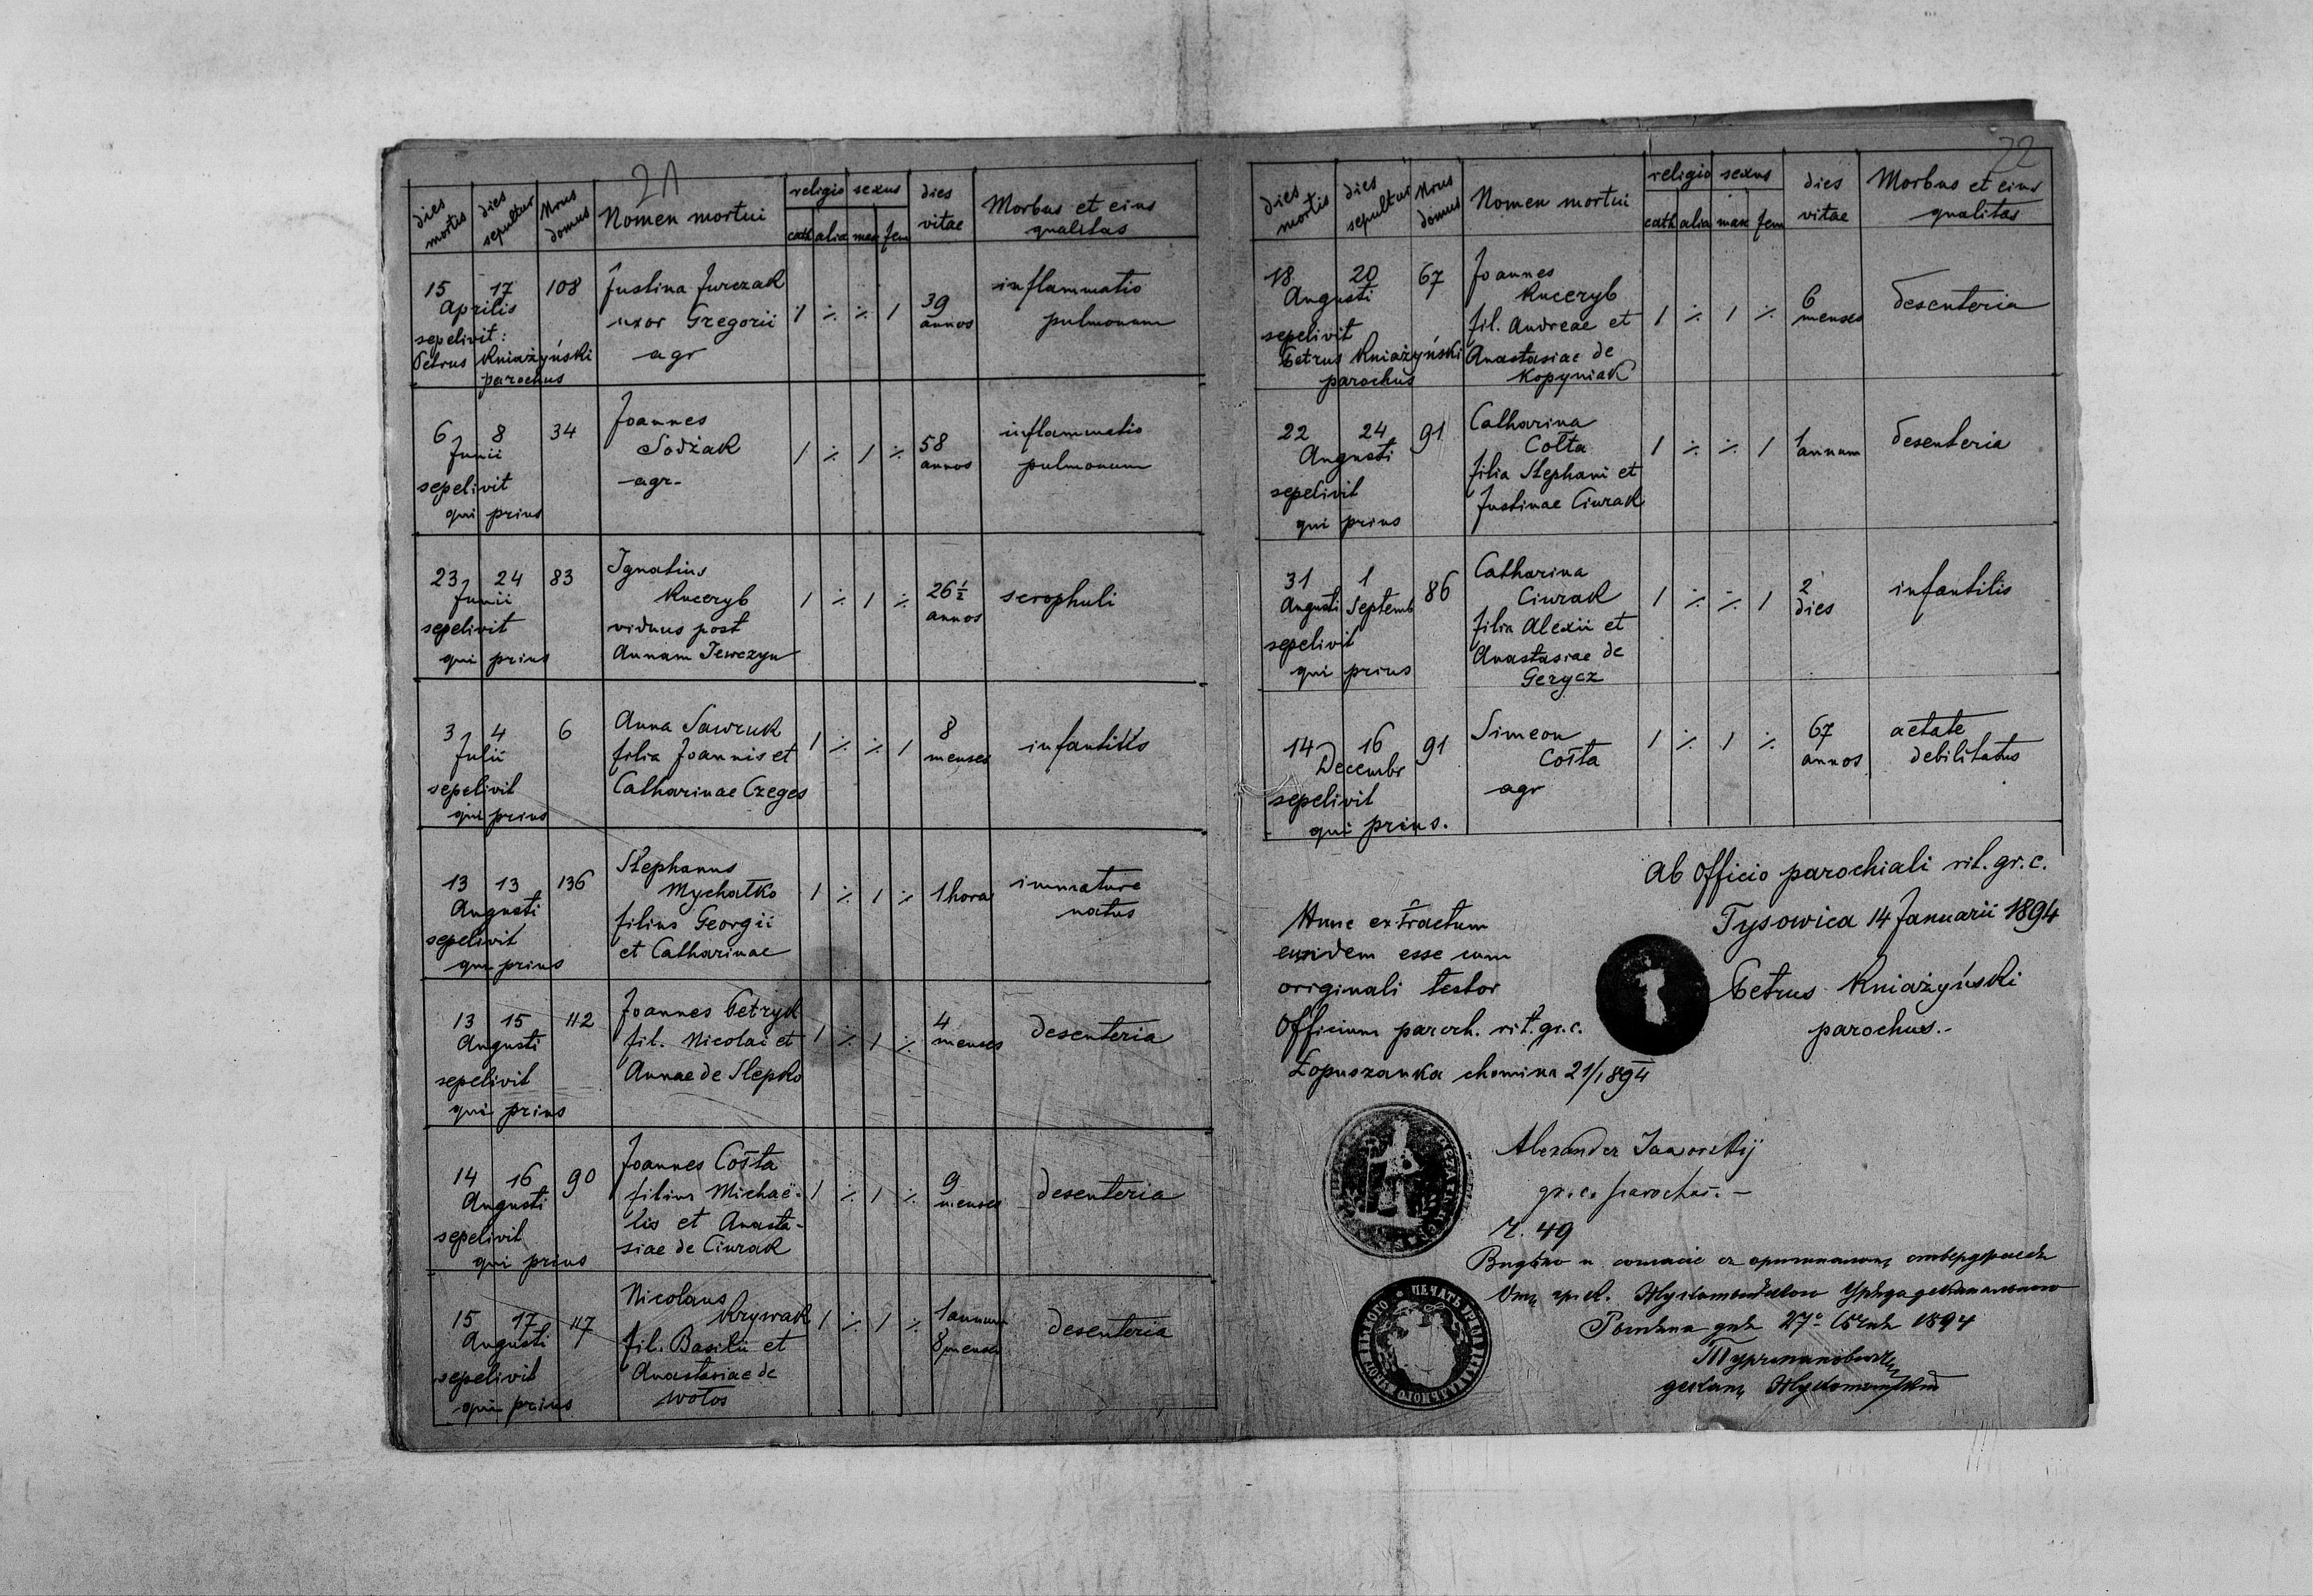 21
dies mortis
dies sepultur
Nrus domus
Nomen mortui
religio
sexus
cath
alia
mas
fem
dies vitae
Morbus et eius
qualitas
15 17 108 Justina Jurczak 1 ٪ ٪ 1 39 inflammatio
Aprilis uxor Gregorii annos pulmonum
sepelivit: agr
Petrus Kniażyński
parochus
6 8 34 Joannes 1 ٪ 1 ٪ 58 inflammatio
Junii Sodżak annos pulmonum
sepelivit agr.
qui prius
23 24 83 Ignatius 1 ٪ 1 ٪ 26 ½ scrophuli
Junii Kuceryb annos
sepelivit viduus post
qui prius Annam Tewczyn
3 4 6 Anna Sawruk 1 ٪ ٪ 1 8 infantilis
Julii filia Joannis et menses
sepelivit Catharinae Czeges
qui prius
13 13 136 Stephanus 1 ٪ 1 ٪ 1 hora immature
Augusti Mychałko natus
sepelivit filius Georgii
qui prius et Catharinae
13 15 112 Joannes Petryk 1 ٪ 1 ٪ 4 desenteria
Augusti fil. Nicolai et menses
sepelivit Annae de Stepko
qui prius
14 16 90 Joannes Cołta 1 ٪ 1 ٪ 9 desenteria
Augusti filius Michaë- menses
sepelivit lis et Anasta-
qui prius siae de Ciurak
15 17 117 Nicolaus 1 ٪ 1 ٪ 1 annum desenteria
Augusti Krywak 8 menses
sepelivit fil. Basilii et
qui prius Anastasiae de
Wołos
22
dies mortis
dies sepultur
Nrus domus
Nomen mortui
religio
sexus
cath
alia
mas
fem
dies vitae
Morbus et eius
qualitas
18 20 67 Joannes 1 ٪ 1 ٪ 6 desenteria
Augusti Kuceryb menses
sepelivit fil. Andreae et
Petrus Kniażyński Anastasiae de
parochus Kopyniak
22 24 91 Catharina 1 ٪ ٪ 1 1 desenteria
Augusti Cołta annum
sepelivit filia Stephani et
qui prius Justinae Ciurak
31 1 86 Catharina 1 ٪ ٪ 1 2 infantilis
Augusti Septemb Ciurak dies
sepelivit filia Alexii et
qui prius Anastasiae de
Gerycz
14 16 91 Simeon 1 ٪ 1 ٪ 67 aetate
Decembr Cołta annos debilitatus
sepelivit agr
qui prius.
Ab Officio parochiali rit. gr. c.
Tysowica 14 Januarii 1894
Petrus Kniażyński
parochus.-
Hunc extractum
eundem esse cum
originali testor
Officium paroch. rit. gr. c.
Łopuszanka chomina 21/1 894
Alexander Jaworskij
gr. c. parochus. -
Ч. 49
Видѣно и согласіе съ оригиналомъ стверджаесь
Отъ гр. к. Жукотинского Уряда деканального
дня 27 1894
деканъ Жукотинскій